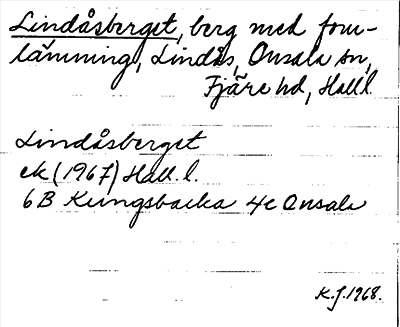 Lindåsberget, berg med forn-
lämning, Lindås, Onsala sn,
Fjäre hd, Hall.l.
Lindåsberget
ek (1967) Hall.l.
6B Kungsbacka 4c Onsala
K.J. 1968.